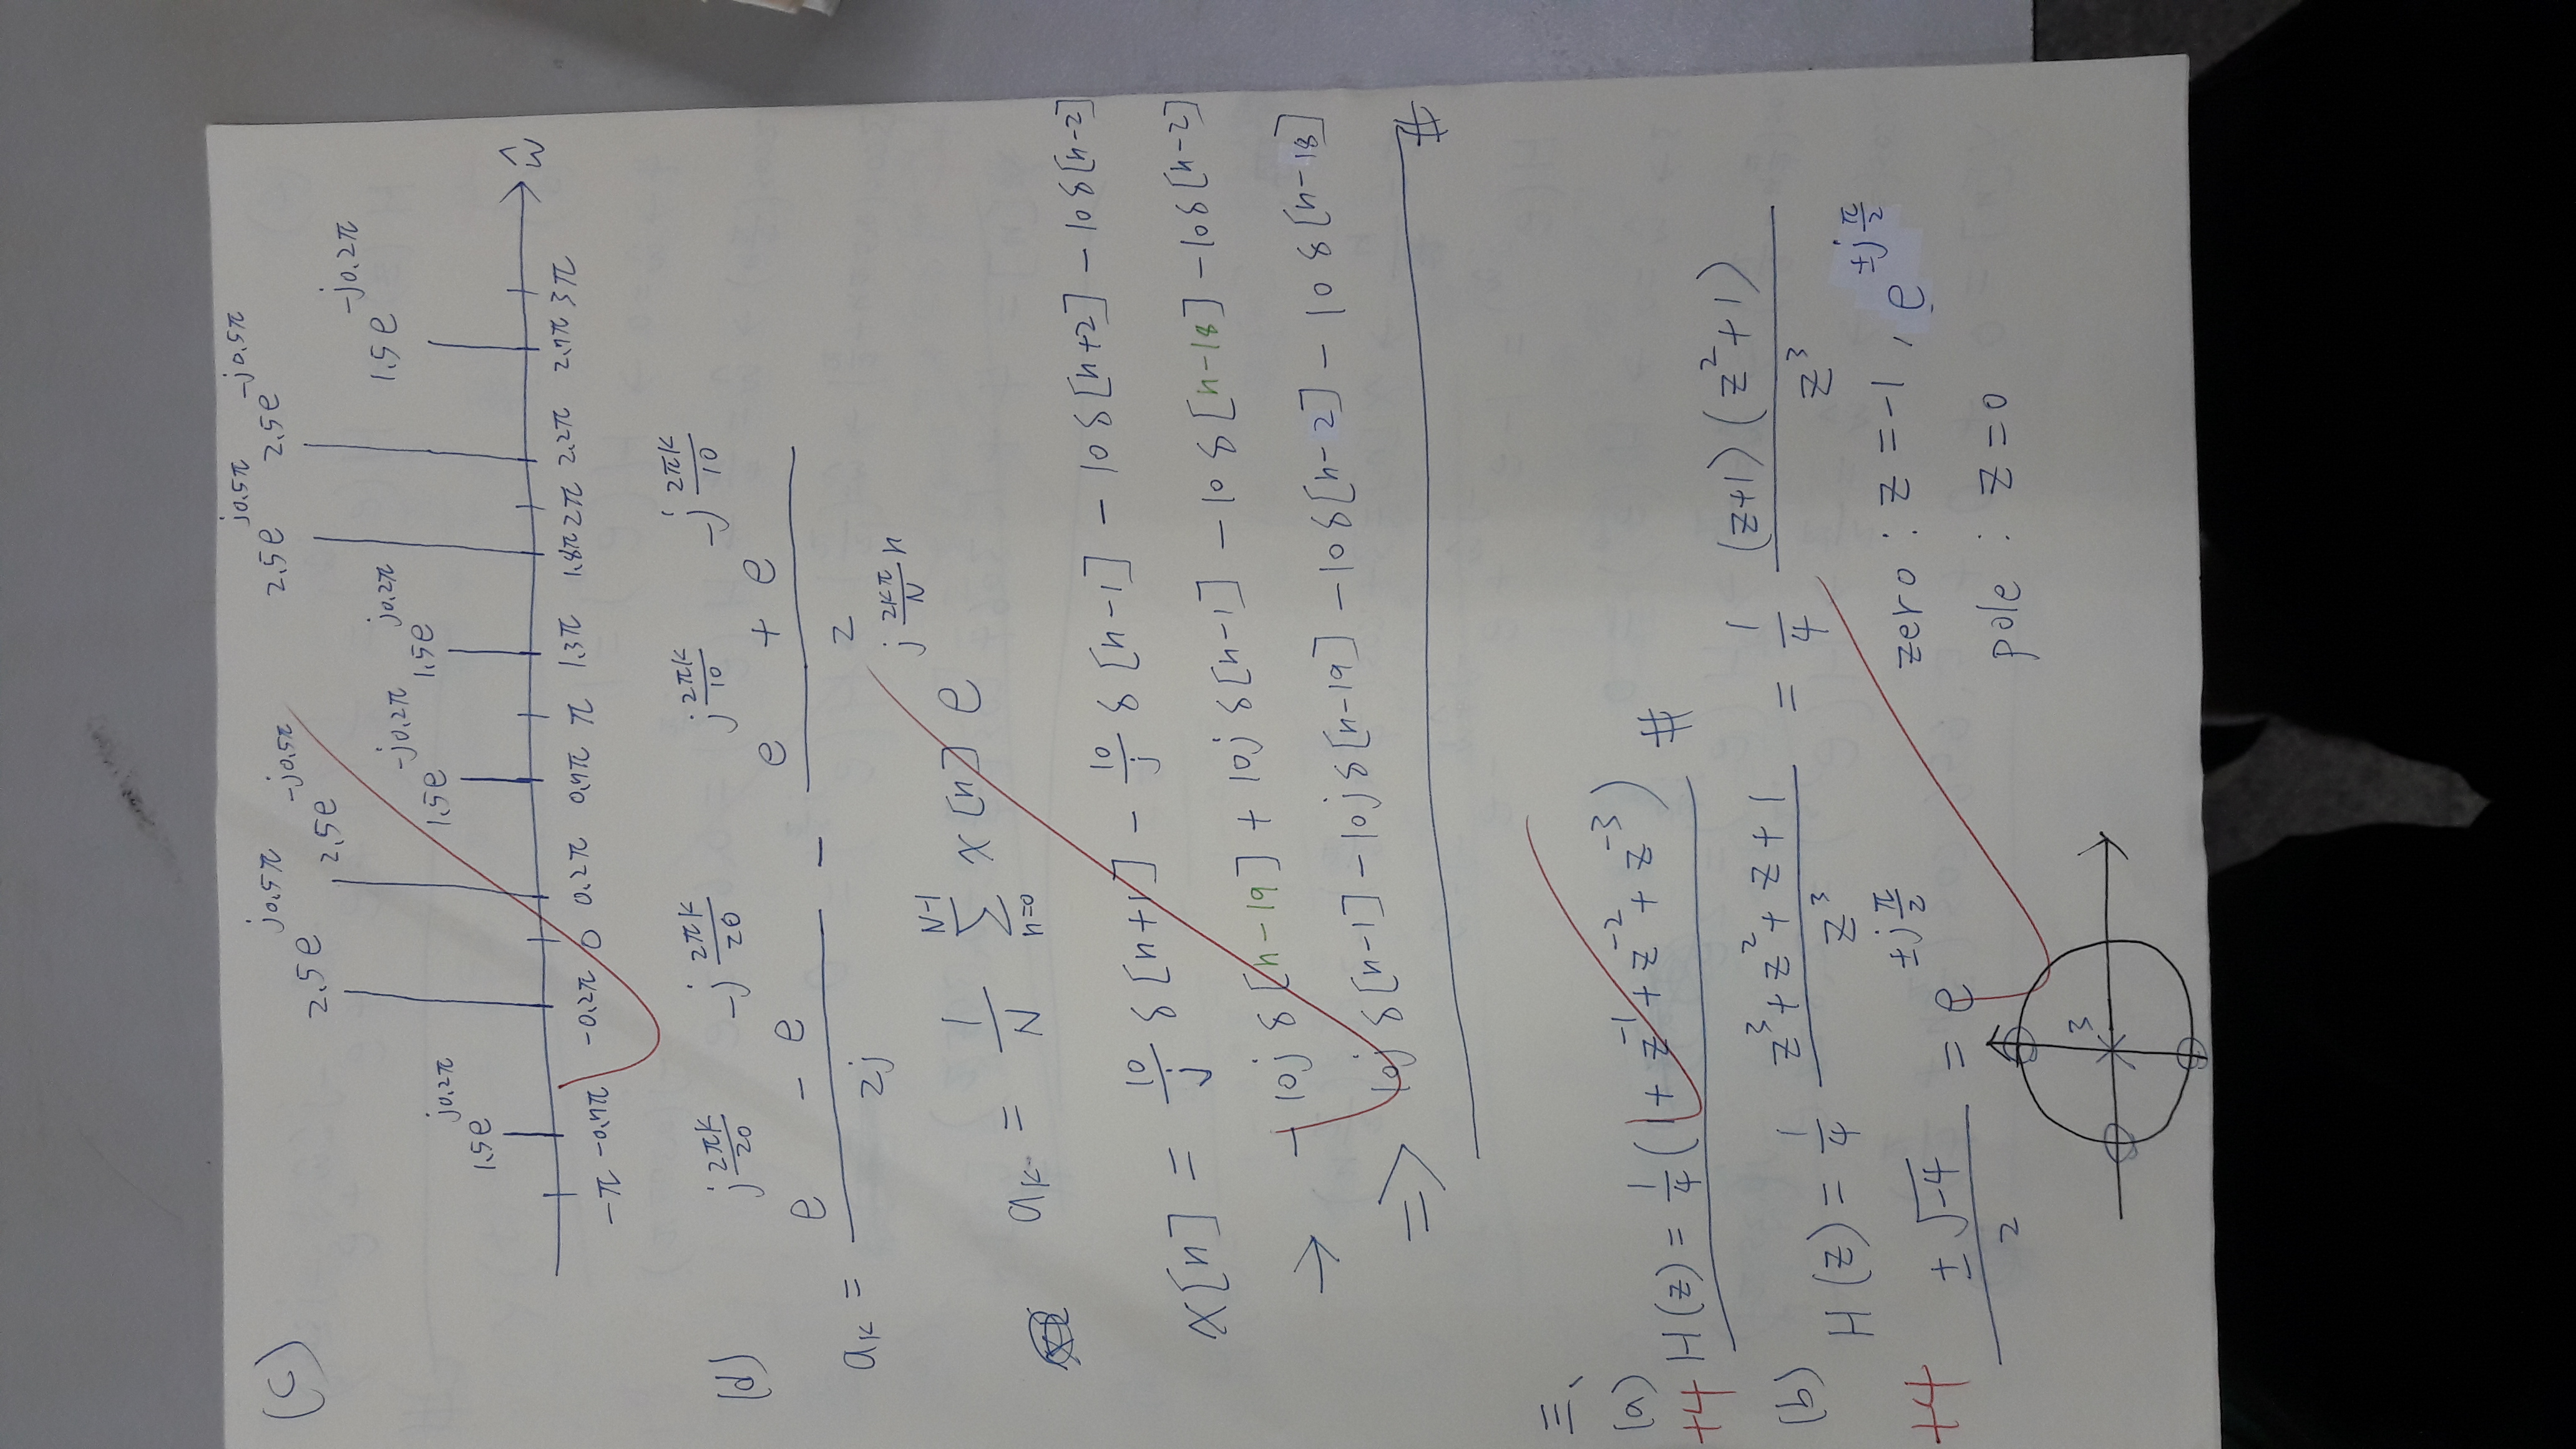 (c)
2.5e^{j0.5π} 2.5e^{-j0.5π} 2.5e^{j0.5π} 2.5e^{-j0.5π}
1.5e^{j0.2π} 1.5e^{-j0.2π} 1.5e^{j0.2π} 1.5e^{-j0.2π}
-π -0.7π -0.2π 0 0.2π 0.7π π 1.3π 1.8π 2π 2.2π 2.7π 3π ŵ
(d)
a_k = \frac{e^{j\frac{2πk}{20}} - e^{-j\frac{2πk}{20}}}{2j} - \frac{e^{j\frac{2πk}{10}} + e^{-j\frac{2πk}{10}}}{2}
a_k = \frac{1}{N} \sum_{n=0}^{N-1} x[n] e^{j\frac{2kπ}{N}n}
x[n] = \frac{10}{j} δ[n+1] - \frac{10}{j} δ[n-1] - 10δ[n+2] - 10δ[n-2]
→ -10jδ[n-19] + 10jδ[n-1] - 10δ[n-18] - 10δ[n-2]
⇒ 10jδ[n-1] - 10jδ[n-19] - 10δ[n-2] - 10δ[n-18] #
三、
(a)
+4 H(z) = \frac{1}{4}(1 + z^{-1} + z^{-2} + z^{-3}) #
(b) H(z) = \frac{1}{4} \frac{z^3 + z^2 + z + 1}{z^3} = \frac{1}{4} \frac{(z+1)(z^2+1)}{z^3}
+4 \frac{±\sqrt{-4}}{2} = e^{±j\frac{π}{2}}
zero : z = -1 , e^{±j\frac{π}{2}}
pole : z = 0
3